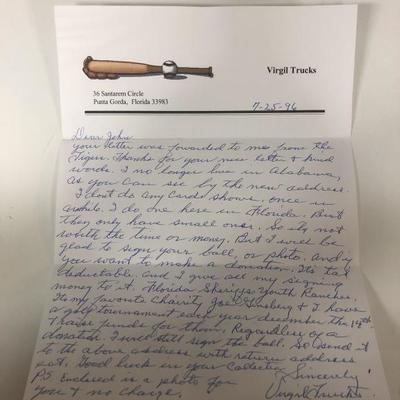 Virgil Trucks
36 Santarem Circle
Punta Gorda, Florida 33983
7-25-96
Dear John
your letter was forwarded to me from the
Tigers. Thanks for your nice letter & kind
words. I no longer live in Alabama,
as you can see by the new address.
I don't do any Card shows. once in
awhile. I do one here in Florida. But
they only have small ones. So its not
worth the time or money. But I will be
glad to sign your ball, or photo. and if
you want to make a donation. Its tax
deductable. and I give all my signing
money to it. Florida Sheriffs Youth Ranches.
Its my favorite Charity, Joe Ginsberg & I have
a golf tournament each year december the 14th
& raise funds for them. Regardless of a
donation. I will still sign the ball. So send it
to the above address with return address
Good luck on your Collection
Sincerely
P.S. Enclosed is a photo for
you & no charge.
Virgil Trucks